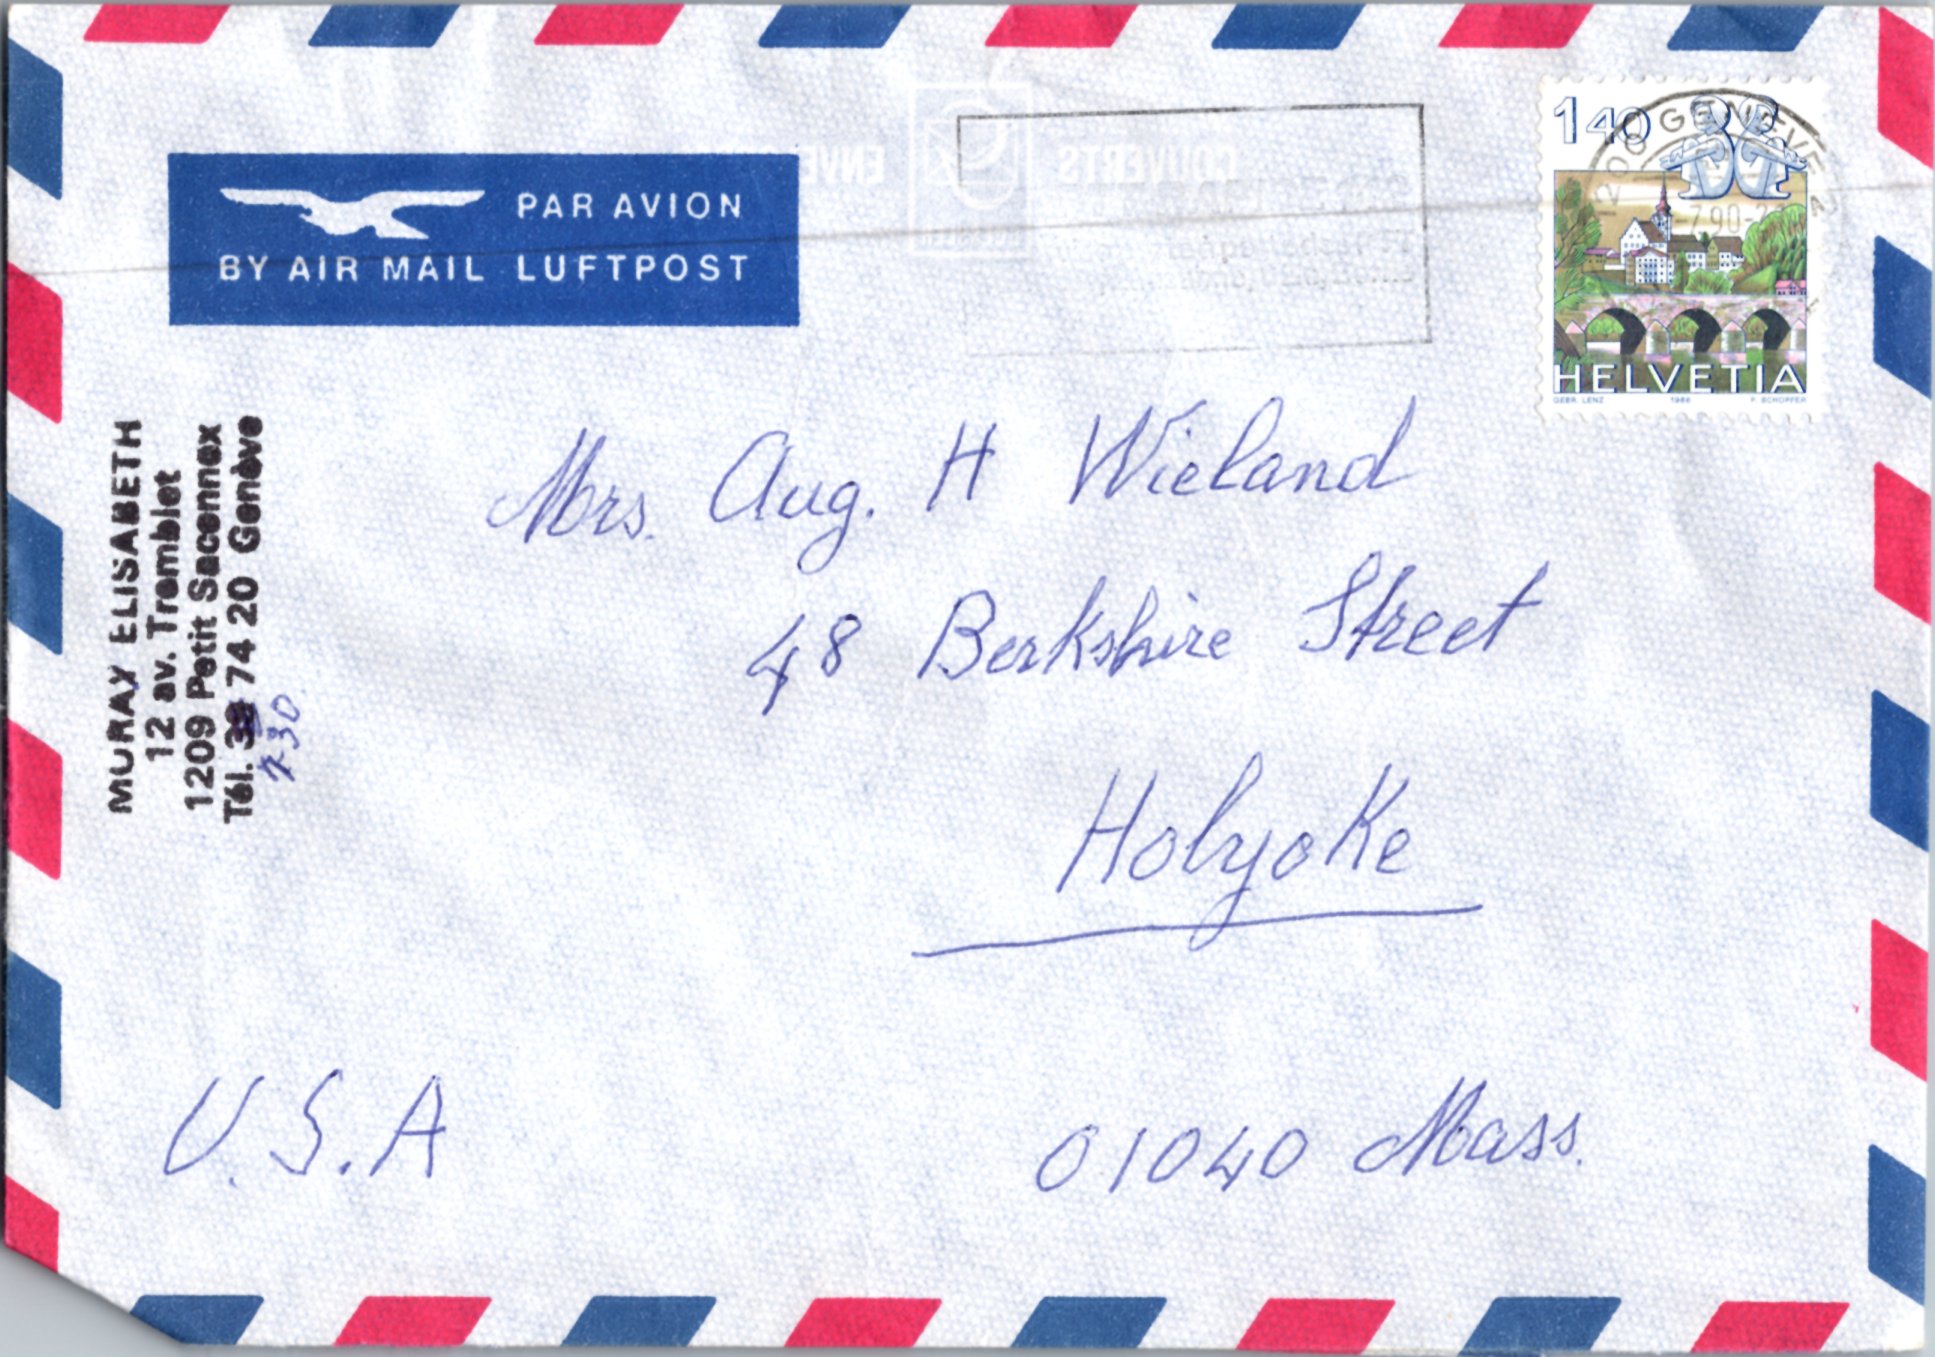 PAR AVION
BY AIR MAIL LUFTPOST
1200 GENEVE
7.90
140
HELVETIA
GEBR. LENZ 1986 P. SCHOPFER
MURAY ELISABETH
12 av. Tremblet
1209 Petit Saconnex
Tél. 74 20 Genève
Mrs. Aug. H Wieland
48 Berkshire Street
Holyoke
U.S.A
01040 Mass.
ENVE
COUVERTS